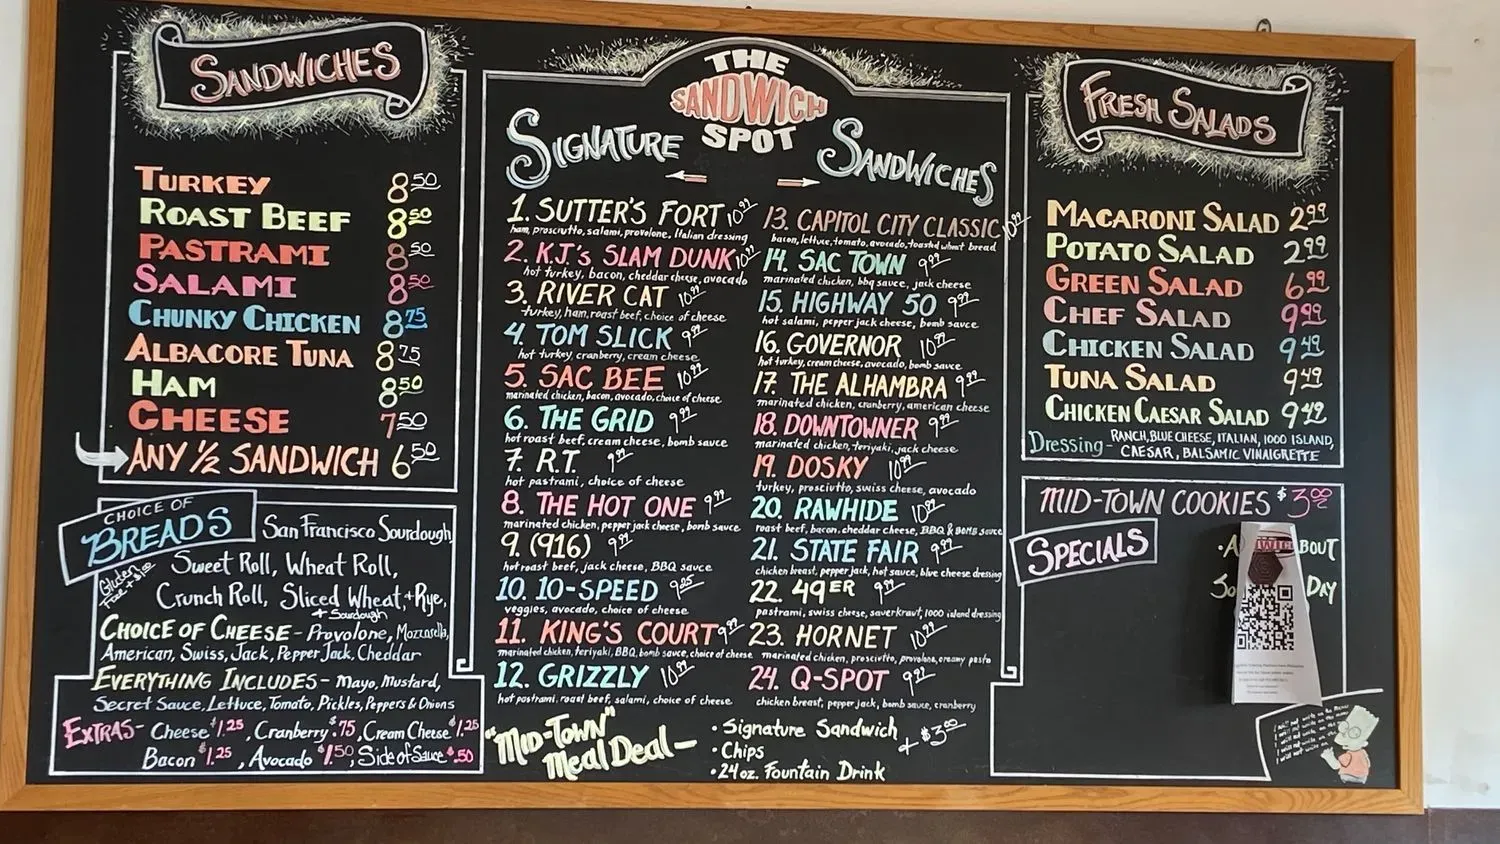 SANDWICHES
TURKEY 8.50
ROAST BEEF 8.50
PASTRAMI 8.50
SALAMI 8.50
CHUNKY CHICKEN 8.75
ALBACORE TUNA 8.75
HAM 8.50
CHEESE 7.50
ANY 1/2 SANDWICH 6.50
CHOICE OF
BREADS
San Francisco Sourdough
Sweet Roll, Wheat Roll,
Gluten
Free + $1.00
Crunch Roll, Sliced Wheat, + Rye,
+ Sourdough
CHOICE OF CHEESE - Provolone, Mozzarella,
American, Swiss, Jack, Pepper Jack, Cheddar
EVERYTHING INCLUDES - Mayo, Mustard,
Secret Sauce, Lettuce, Tomato, Pickles, Peppers & Onions
EXTRAS - Cheese $1.25, Cranberry $.75, Cream Cheese $1.25
Bacon $1.25, Avocado $1.50, Side of Sauce $.50
THE
SANDWICH
SPOT
SIGNATURE SANDWICHES
1. SUTTER'S FORT 10.99
ham, prosciutto, salami, provolone, Italian dressing
2. K.J.'s SLAM DUNK 10.99
hot turkey, bacon, cheddar cheese, avocado
3. RIVER CAT 10.99
turkey, ham, roast beef, choice of cheese
4. TOM SLICK 9.99
hot turkey, cranberry, cream cheese
5. SAC BEE 10.99
marinated chicken, bacon, avocado, choice of cheese
6. THE GRID 9.99
hot roast beef, cream cheese, bomb sauce
7. R.T. 9.99
hot pastrami, choice of cheese
8. THE HOT ONE 9.99
marinated chicken, pepper jack cheese, bomb sauce
9. (916) 9.99
hot roast beef, jack cheese, BBQ sauce
10. 10-SPEED 9.25
veggies, avocado, choice of cheese
11. KING'S COURT 9.99
marinated chicken, teriyaki, BBQ, bomb sauce, choice of cheese
12. GRIZZLY 10.99
hot pastrami, roast beef, salami, choice of cheese
13. CAPITOL CITY CLASSIC 10.99
bacon, lettuce, tomato, avocado, toasted wheat bread
14. SAC TOWN 9.99
marinated chicken, bbq sauce, jack cheese
15. HIGHWAY 50 9.99
hot salami, pepper jack cheese, bomb sauce
16. GOVERNOR 10.99
hot turkey, cream cheese, avocado, bomb sauce
17. THE ALHAMBRA 9.99
marinated chicken, cranberry, american cheese
18. DOWNTOWNER 9.99
marinated chicken, teriyaki, jack cheese
19. DOSKY 10.99
turkey, prosciutto, swiss cheese, avocado
20. RAWHIDE 10.99
roast beef, bacon, cheddar cheese, BBQ & BOMB sauce
21. STATE FAIR 9.99
chicken breast, pepper jack, hot sauce, blue cheese dressing
22. 49ER 9.99
pastrami, swiss cheese, sauerkraut, 1000 island dressing
23. HORNET 10.99
marinated chicken, prosciutto, provolone, creamy pesto
24. Q-SPOT 9.99
chicken breast, pepper jack, bomb sauce, cranberry
"MID-TOWN"
Meal Deal -
• Signature Sandwich
• Chips
• 24 oz. Fountain Drink
+ $3.00
FRESH SALADS
MACARONI SALAD 2.99
POTATO SALAD 2.99
GREEN SALAD 6.99
CHEF SALAD 9.99
CHICKEN SALAD 9.49
TUNA SALAD 9.49
CHICKEN CAESAR SALAD 9.49
Dressing - RANCH, BLUE CHEESE, ITALIAN, 1000 ISLAND,
CAESAR, BALSAMIC VINAIGRETTE
MID-TOWN COOKIES $3.00
SPECIALS
BOUT
DAY